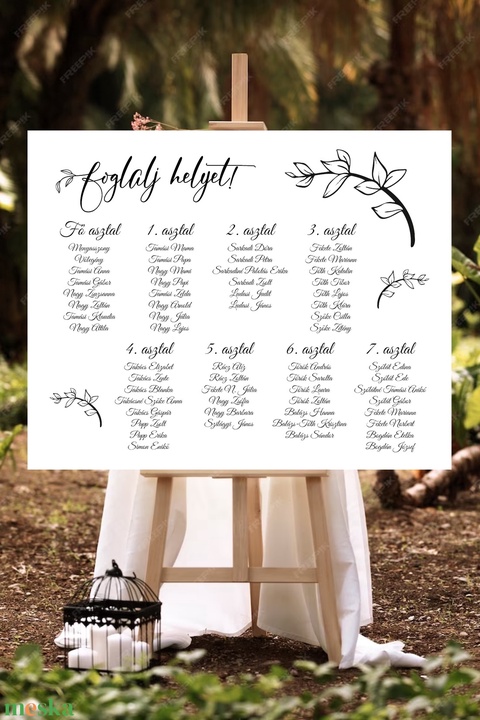 foglalj helyet!
Fő asztal
Menyasszony
Vőlegény
Tamási Anna
Tamási Gábor
Nagy Zsuzsanna
Nagy Zoltán
Tamási Klaudia
Nagy Attila
1. asztal
Tamási Mama
Tamási Papa
Nagy Mami
Nagy Papi
Tamási Zelda
Nagy Arnold
Nagy Júlia
Nagy Lajos
2. asztal
Sarkadi Dóra
Sarkadi Péter
Sarkadiné Palotás Erika
Sarkadi Zsolt
Ludasi Judit
Ludasi János
3. asztal
Fekete Zoltán
Fekete Mariann
Tóth Katalin
Tóth Tibor
Tóth Lajos
Tóth Kitara
Szőke Csilla
Szőke Zétény
4. asztal
Takács Erzsébet
Takács Zente
Takács Blanka
Takácsné Szőke Anna
Takács Gáspár
Papp Zsolt
Papp Erika
Simon Enikő
5. asztal
Rácz Alíz
Rácz Zoltán
Fekete N. Júlia
Nagy Zsófia
Nagy Barbara
Szilágyi János
6. asztal
Török András
Török Sarolta
Török Laura
Török Zoltán
Balázs Hanna
Balázs-Tóth Krisztina
Balázs Sándor
7. asztal
Szolát Edina
Szolát Ede
Szolátné Tamási Anikó
Szolát Gábor
Fekete Marianna
Fekete Norbert
Bogdán Etelka
Bogdán József
meska